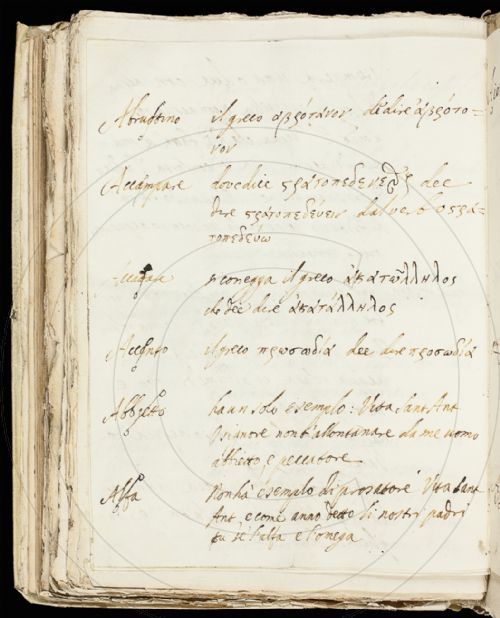 Abruotino il greco αβρότανον de dire ἀβρότο=
νον
Accampare dove dice στρατοπεδενεῖς dee
dire στρατοπεδεύειν dal verbo στρα=
τοπεδεύω
si corregga il greco ἀκατώλληλος
che dee dire ἀκατάλληλος
Accento il greco πρωσωδία dee dire προσωδία
Abbietto ha un solo esemplo: Vita Sant Ant
Signore non t'allontanare da me uomo
abbietto, e peccatore
Alfa Non ha esemplo di prosatore Vita Sant
Ant. e come anno dette li nostri padri
tu sè l'alfa e l'omega